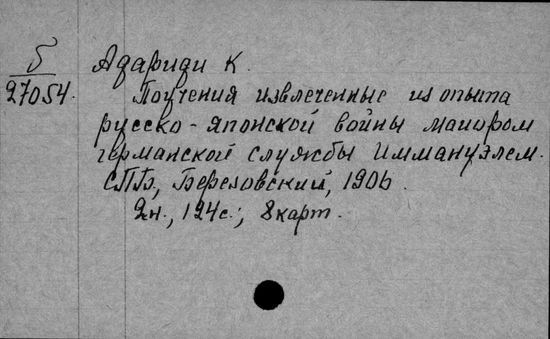 Б
27054.
Адариди К.
Поучения извлеченные из опыта
русско-японской войны майором
германской службы Иммануэлем.
СПБ, Березовский, 1906.
2н., 124с., 8карт.